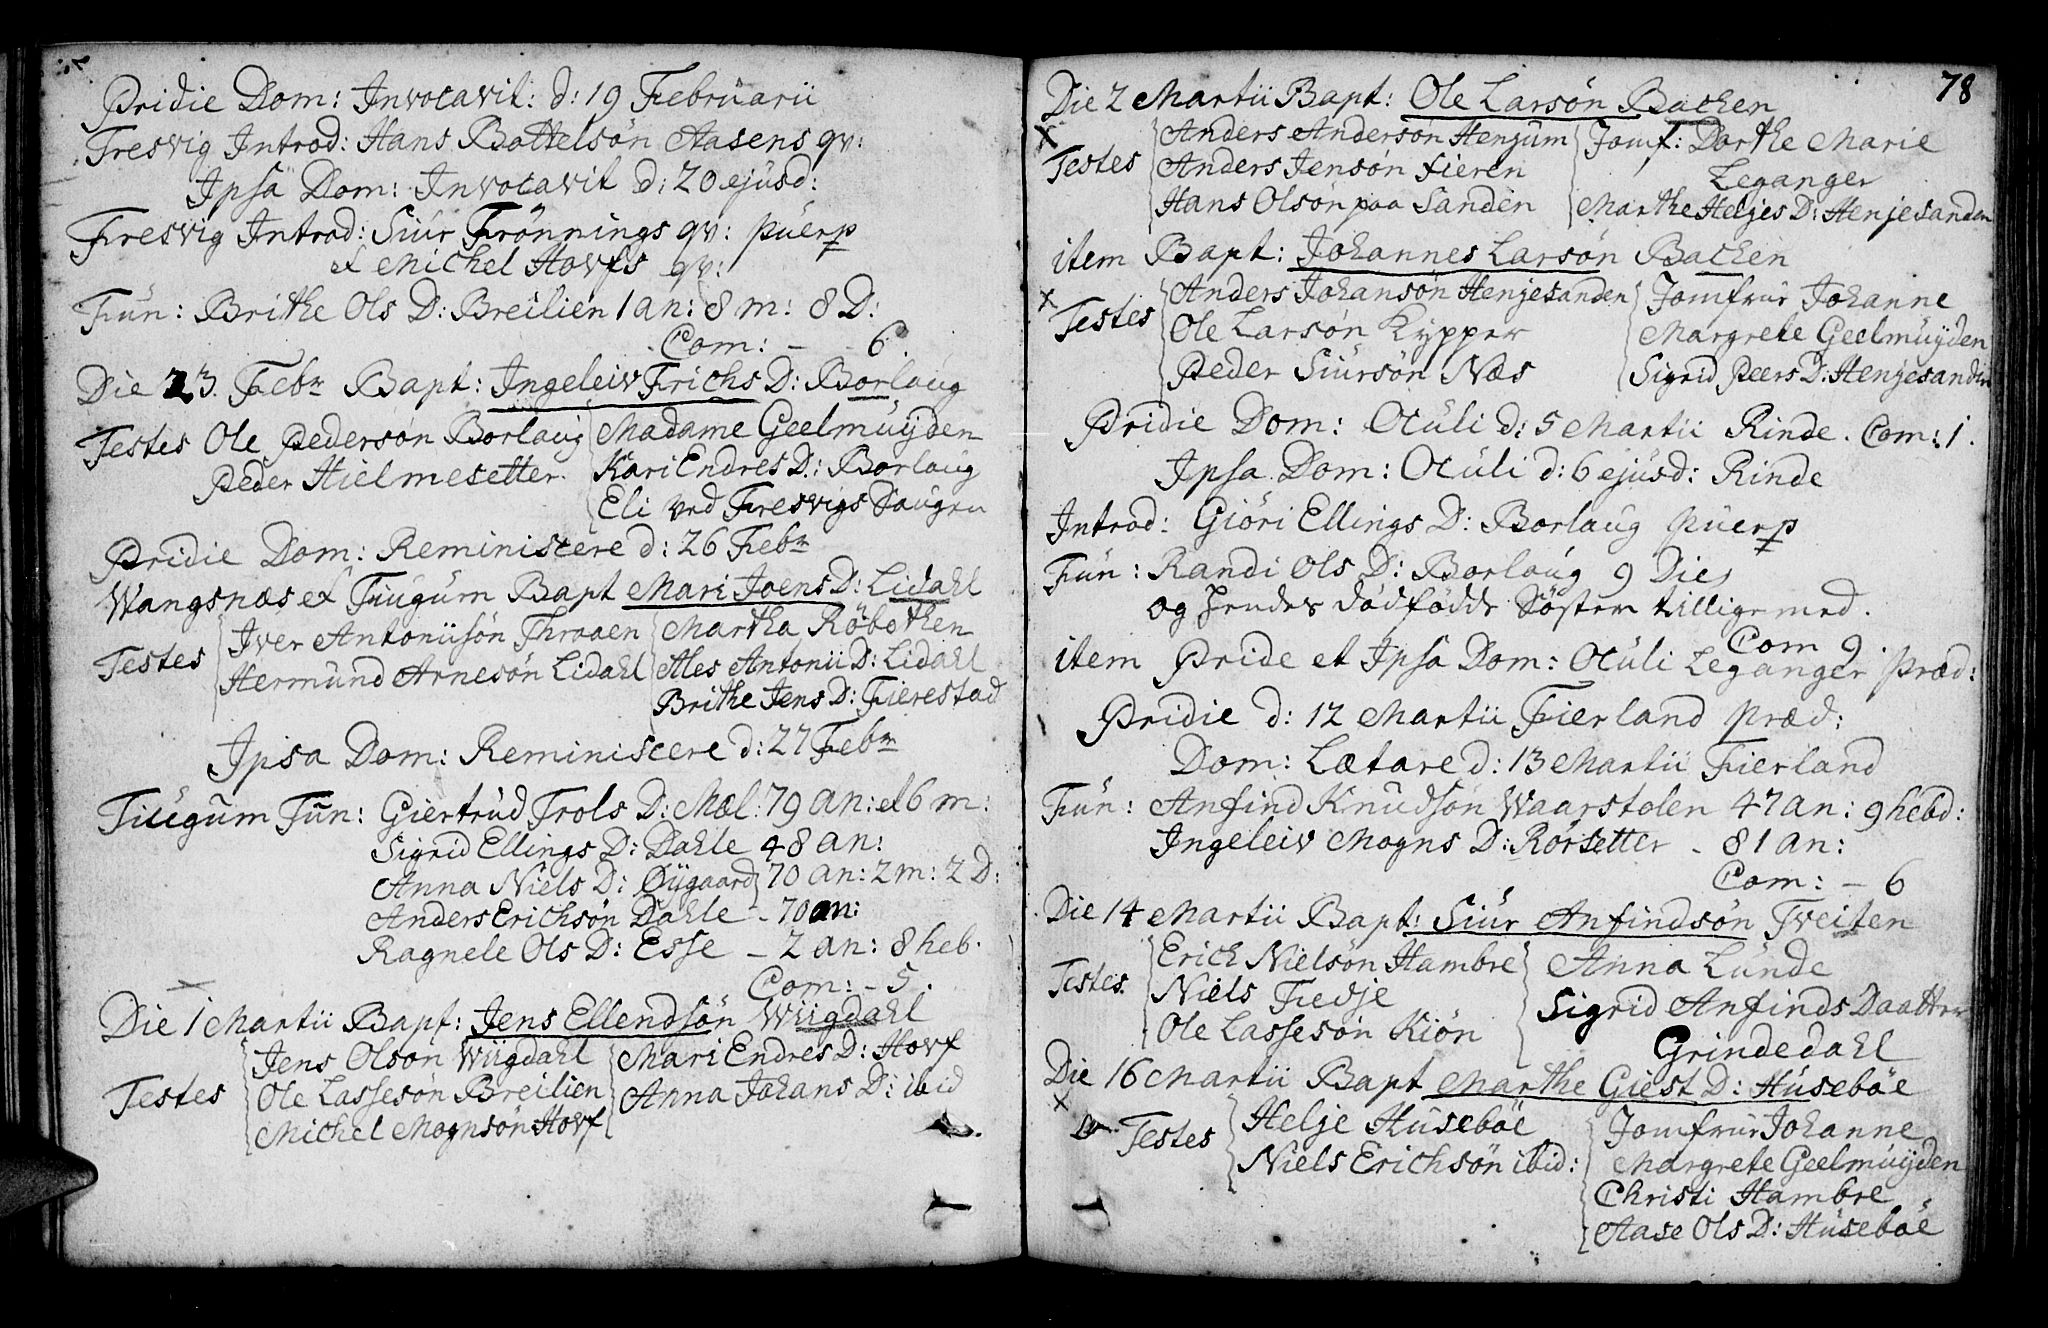 Pridie Dom: Invocavit: d: 19 Februarii
Fresvig Introd: Hans Bottelsøn Aasens qv:
Ipsa Dom: Invocavit d: 20 ejusd:
Fresvig Introd: Siur Frönnings qv: puerp
et Michel Hovfs qv:
Fun: Brithe Ols D: Breilien 1 an: 8 m: 8 D:
Com: - - 6.
Die 23. Febr Bapt: Ingeleiv Frichs D: Borlaug
Testes Ole Pedersøn Borlaug Madame Geelmuyden
Peder Hielmesetter. Kari Endres D: Borlaug
Eli ved Fresvigs Saugen
Pridie Dom: Reminiscere d: 26 Febr
Wangsnæs et Fiugum Bapt Mari Joens D: Lidahl
Testes Iver Antoniisøn Thraaen Martha Röbothen
Hermund Arnesøn Lidahl Ales Antonii D: Lidahl
Brithe Jens D: Fierestad
Ipsa Dom: Reminiscere d: 27 Febr
Fiugum Fun: Giertrud Trols D: Mæl: 79 an: et 6 m:
Sigrid Ellings D: Dahle 48 an:
Anna Niels D: Øygaard 70 an: 2 m: 2 D:
Anders Erichsøn Dahle - 70 an:
Ragnele Ols D: Esse - 2 an: 8 heb.
Com: - 5.
Die 1 Martii Bapt: Jens Ellendsøn Wiigdahl
Testes Jens Olson Wiigdahl Mari Endres D: Hovf
Ole Lassesøn Breilien Anna Johans D: ibid
Michel Mognsøn Hovf
78
Die 2 Martii Bapt: Ole Larsøn Bachen
x
Testes Anders Andersøn Henjum Jomf: Dorthe Marie
Anders Jensøn Fieren Leganger
Hans Olsøn paa Sanden Marthe Heljes D: Henjesanden
item Bapt: Johannes Larsøn Bachen
x
Testes Anders Johansøn Henjesanden Jomfrur Johanne
Ole Larsøn Kypper Margrete Geelmuyden
Peder Siursøn Næs Sigrid Peers D: Henjesanden
Pridie Dom: Oculi d: 5 Martii Rinde. Com: 1.
Ipsa Dom: Oculi d: 6 ejusd: Rinde
Introd: Giöri Ellings D: Borlaug puerp
Fun: Randi Ols D: Borlaug 9 Die
og hendes dödfödde Söster tillige med.
Com 9.
item Pride et Ipsa Dom: Oculi Leganger Præd:
Pridie d: 12 Martii Fierland Præd:
Dom: Lætare d: 13 Martii Fierland
Fun: Anfind Knudsøn Waarstolen 47 an: 9 hebd:
Ingeleiv Mogns D: Rörsetter - 81 an:
Com: - 6
Die 14 Martii Bapt: Siur Anfindsøn Tveiten
Testes. Erich Nielsøn Hambre Anna Lunde
Niels Fedje Sigrid Anfinds Daatter
Ole Lassesøn Kiön Grindedahl
Die 16 Martii Bapt Marthe Giest D: Huseböe
x
Testes Helje Huseböe Jomfrur Johanne
Niels Erichsøn ibid: Margrete Geelmuyden
Christi Hambre
Aase Ols D: Huseböe